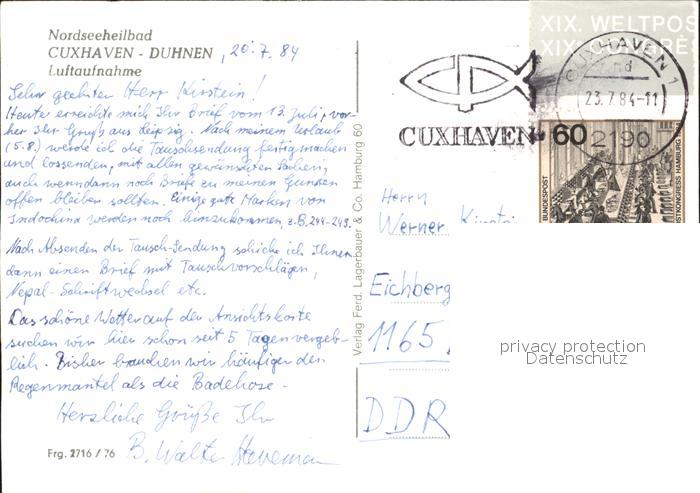 Nordseeheilbad
CUXHAVEN - DUHNEN , 20.7.84
Luftaufnahme
Sehr geehrter Herr Kirstein!
Heute erreichte mich Ihr Brief vom 12. Juli, vor-
her Ihr Gruß aus Leipzig. Nach meinem Urlaub
(5.8.) werde ich die Tauschsendung fertigmachen
und lossenden, mit allen gewünschten Sachen,
auch wenn dann noch Briefe zu meinen Gunsten
offen bleiben sollten. Einige gute Marken von
Indochina werden noch hinzukommen, z.B. 244-249.
Nach Absenden der Tausch-Sendung schicke ich Ihnen
dann einen Brief mit Tauschvorschlägen,
Nepal-Schriftwechsel etc.
Das schöne Wetter auf der Ansichtskarte
suchen wir hier schon seit 5 Tagen vergeb-
lich. Bisher brauchen wir häufiger den
Regenmantel als die Badehose.
Herzliche Grüße Ihr
B. Walter
Frg. 2716/76
Verlag Ferd. Lagerbauer & Co. Hamburg 60
XIX. WELTPOS
XIX. CONGRÈ
CUXHAVEN 1
23.7.84-11
2190
CUXHAVEN
60
BUNDESPOST
OSTKONGRESS HAMBURG
Herrn
Werner Kirstein
Eichberg
1165
DDR
privacy protection
Datenschutz